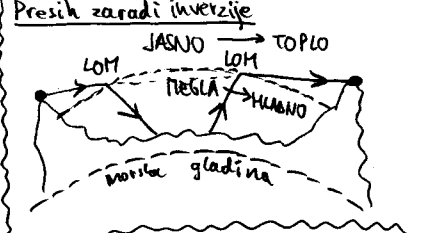 Presih zaradi inverzije
JASNO → TOPLO
LOM LOM
MEGLA → HLADNO
morska gladina